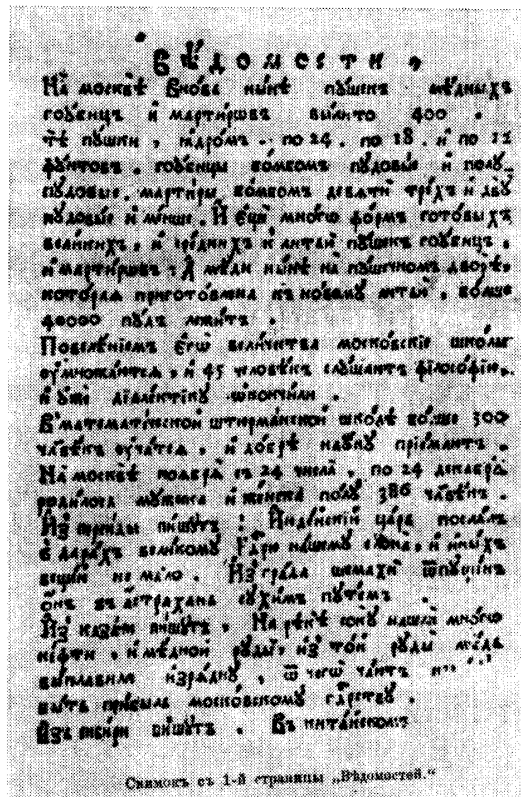 ВѢ́ДОМОСТИ
На́ москвѣ̀ вно́ва ны́нѣ пꙋ́шекъ мѣ́дныхъ
го́ꙋбицъ и҆ марти́ршвъ вы́лито 400 .
тѣ̀ пꙋ́шки , ꙗ҆дро́мъ . по 24 . по 18 . и҆ по 12
фꙋ́нтовъ . го́ꙋбицы бо́мбомъ пꙋ́довые и҆ полꙋ
пꙋ́довые . марти́ры бо́мбомъ девѧтѝ тре́хъ и҆ двꙋ̀
пꙋ́довые и҆ ме́нше . И҆ є҆щѐ мно́гѡ фо́рмъ гото́выхъ
вели́кихъ , и҆ сре́днихъ к литью̀ пꙋ́шекъ го́ꙋбицъ ,
и҆ марти́ршвъ : А҆ мѣ́ди ны́нѣ на̀ пꙋ́шечномъ дворѣ̀,
кото́раѧ пригото́влена къ но́вомꙋ литью̀ , бо́лше
40000 пꙋ́дъ лежи́тъ .
Повелѣ́нїемъ є҆гѡ̀ вели́чества моско́вскїе шко́лы
ᲂу҆множа́ютсѧ , и҆ 45 человѣ́къ слꙋ́шаютъ фїлосо́фїю ,
и҆ ᲂу҆жѐ дїале́ктїкꙋ ѡ҆ко́нчили .
В̾ математі́ческой штюрма́нской шко́лѣ бо́лше 300
чл҃вѣ́къ ᲂу҆́чатсѧ , и҆ до́брѣ наꙋ́кꙋ прїе́млютъ .
На̀ москвѣ̀ ноѧбрѧ̀ съ 24 числа̀ , по 24 декабрѧ̀
роди́лось мꙋ́жеска и҆ же́нска по́лꙋ 386 чл҃вѣ́къ .
И҆з̾ пе́рсиды пи́шꙋтъ : И҆нді́йскїй ца́рь посла́лъ
в̾ дарѣ́хъ вели́комꙋ Гд҃рю на́шемꙋ слона̀ , и҆ и҆ны́хъ
веще́й не ма́ло . И҆з̾ гра́да шемахѝ ѿпꙋ́щенъ
ѻ҆́нъ въ а҆́страхань сꙋхи́мъ пꙋте́мъ .
И҆з̾ каза́ни пи́шꙋтъ . На̀ рѣкѣ̀ сокꙋ̀ нашлѝ мно́гѡ
не́фти , и҆ мѣ́дной рꙋды̀ , и҆з̾ то́й рꙋды̀ мѣ́дь
вы́плавили и҆зрѧ́днꙋ , ѿ чегѡ̀ ча́ютъ
бы́ть при́быль моско́вскомꙋ гд҃рствꙋ .
И҆з̾ сиби́ри пи́шꙋтъ . Въ кита́йскомъ
Снимокъ съ 1-й страницы „Вѣдомостей.“